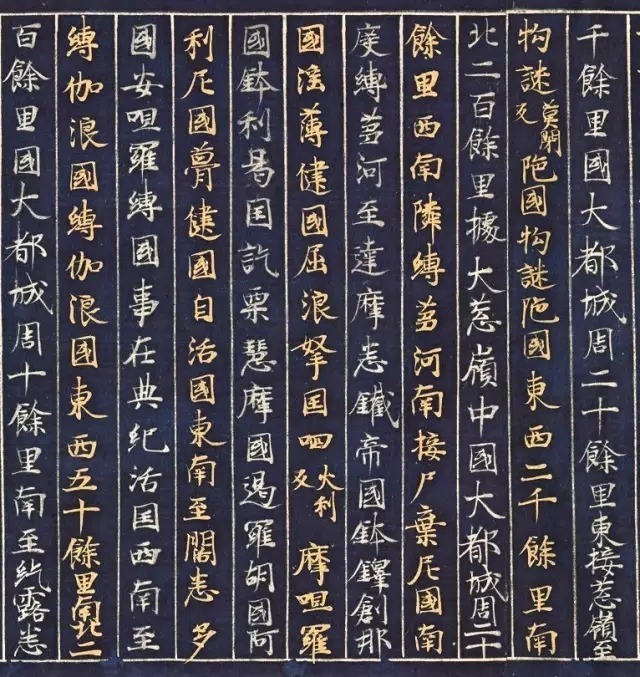 千餘里國大都城周二十餘里東接葱嶺至
拘謎莫閉反陁國拘謎陁國東西二千餘里南
北二百餘里據大葱嶺中國大都城周二十
餘里西南隣縛芻河南接尸棄尼國南
度縛芻河至達摩悉鐵帝國鉢鐸創那
國淫薄健國屈浪拏国呬火利反摩呾羅
國鉢利曷国訖栗慧摩國遏羅胡國阿
利尼國瞢健國自活國東南至闊悉多
國安呾羅縛國事在典紀活国西南至
縛伽浪國縛伽浪國東西五十餘里南北二
百餘里國大都城周十餘里南至紇露悉